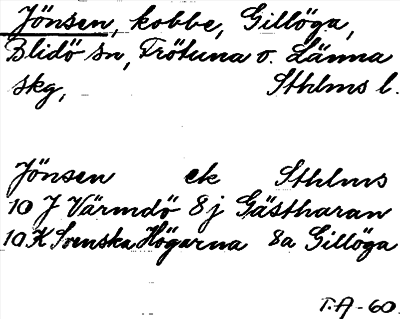 Jönsen, kobbe, Gillöga,
Blidö sn, Frötuna o. Länna
skg, Sthlms l.
Jönsen ek Sthlms
10 J Värmdö 8j Gästharan
10 K Svenska Högarna 8a Gillöga
T.A-60.